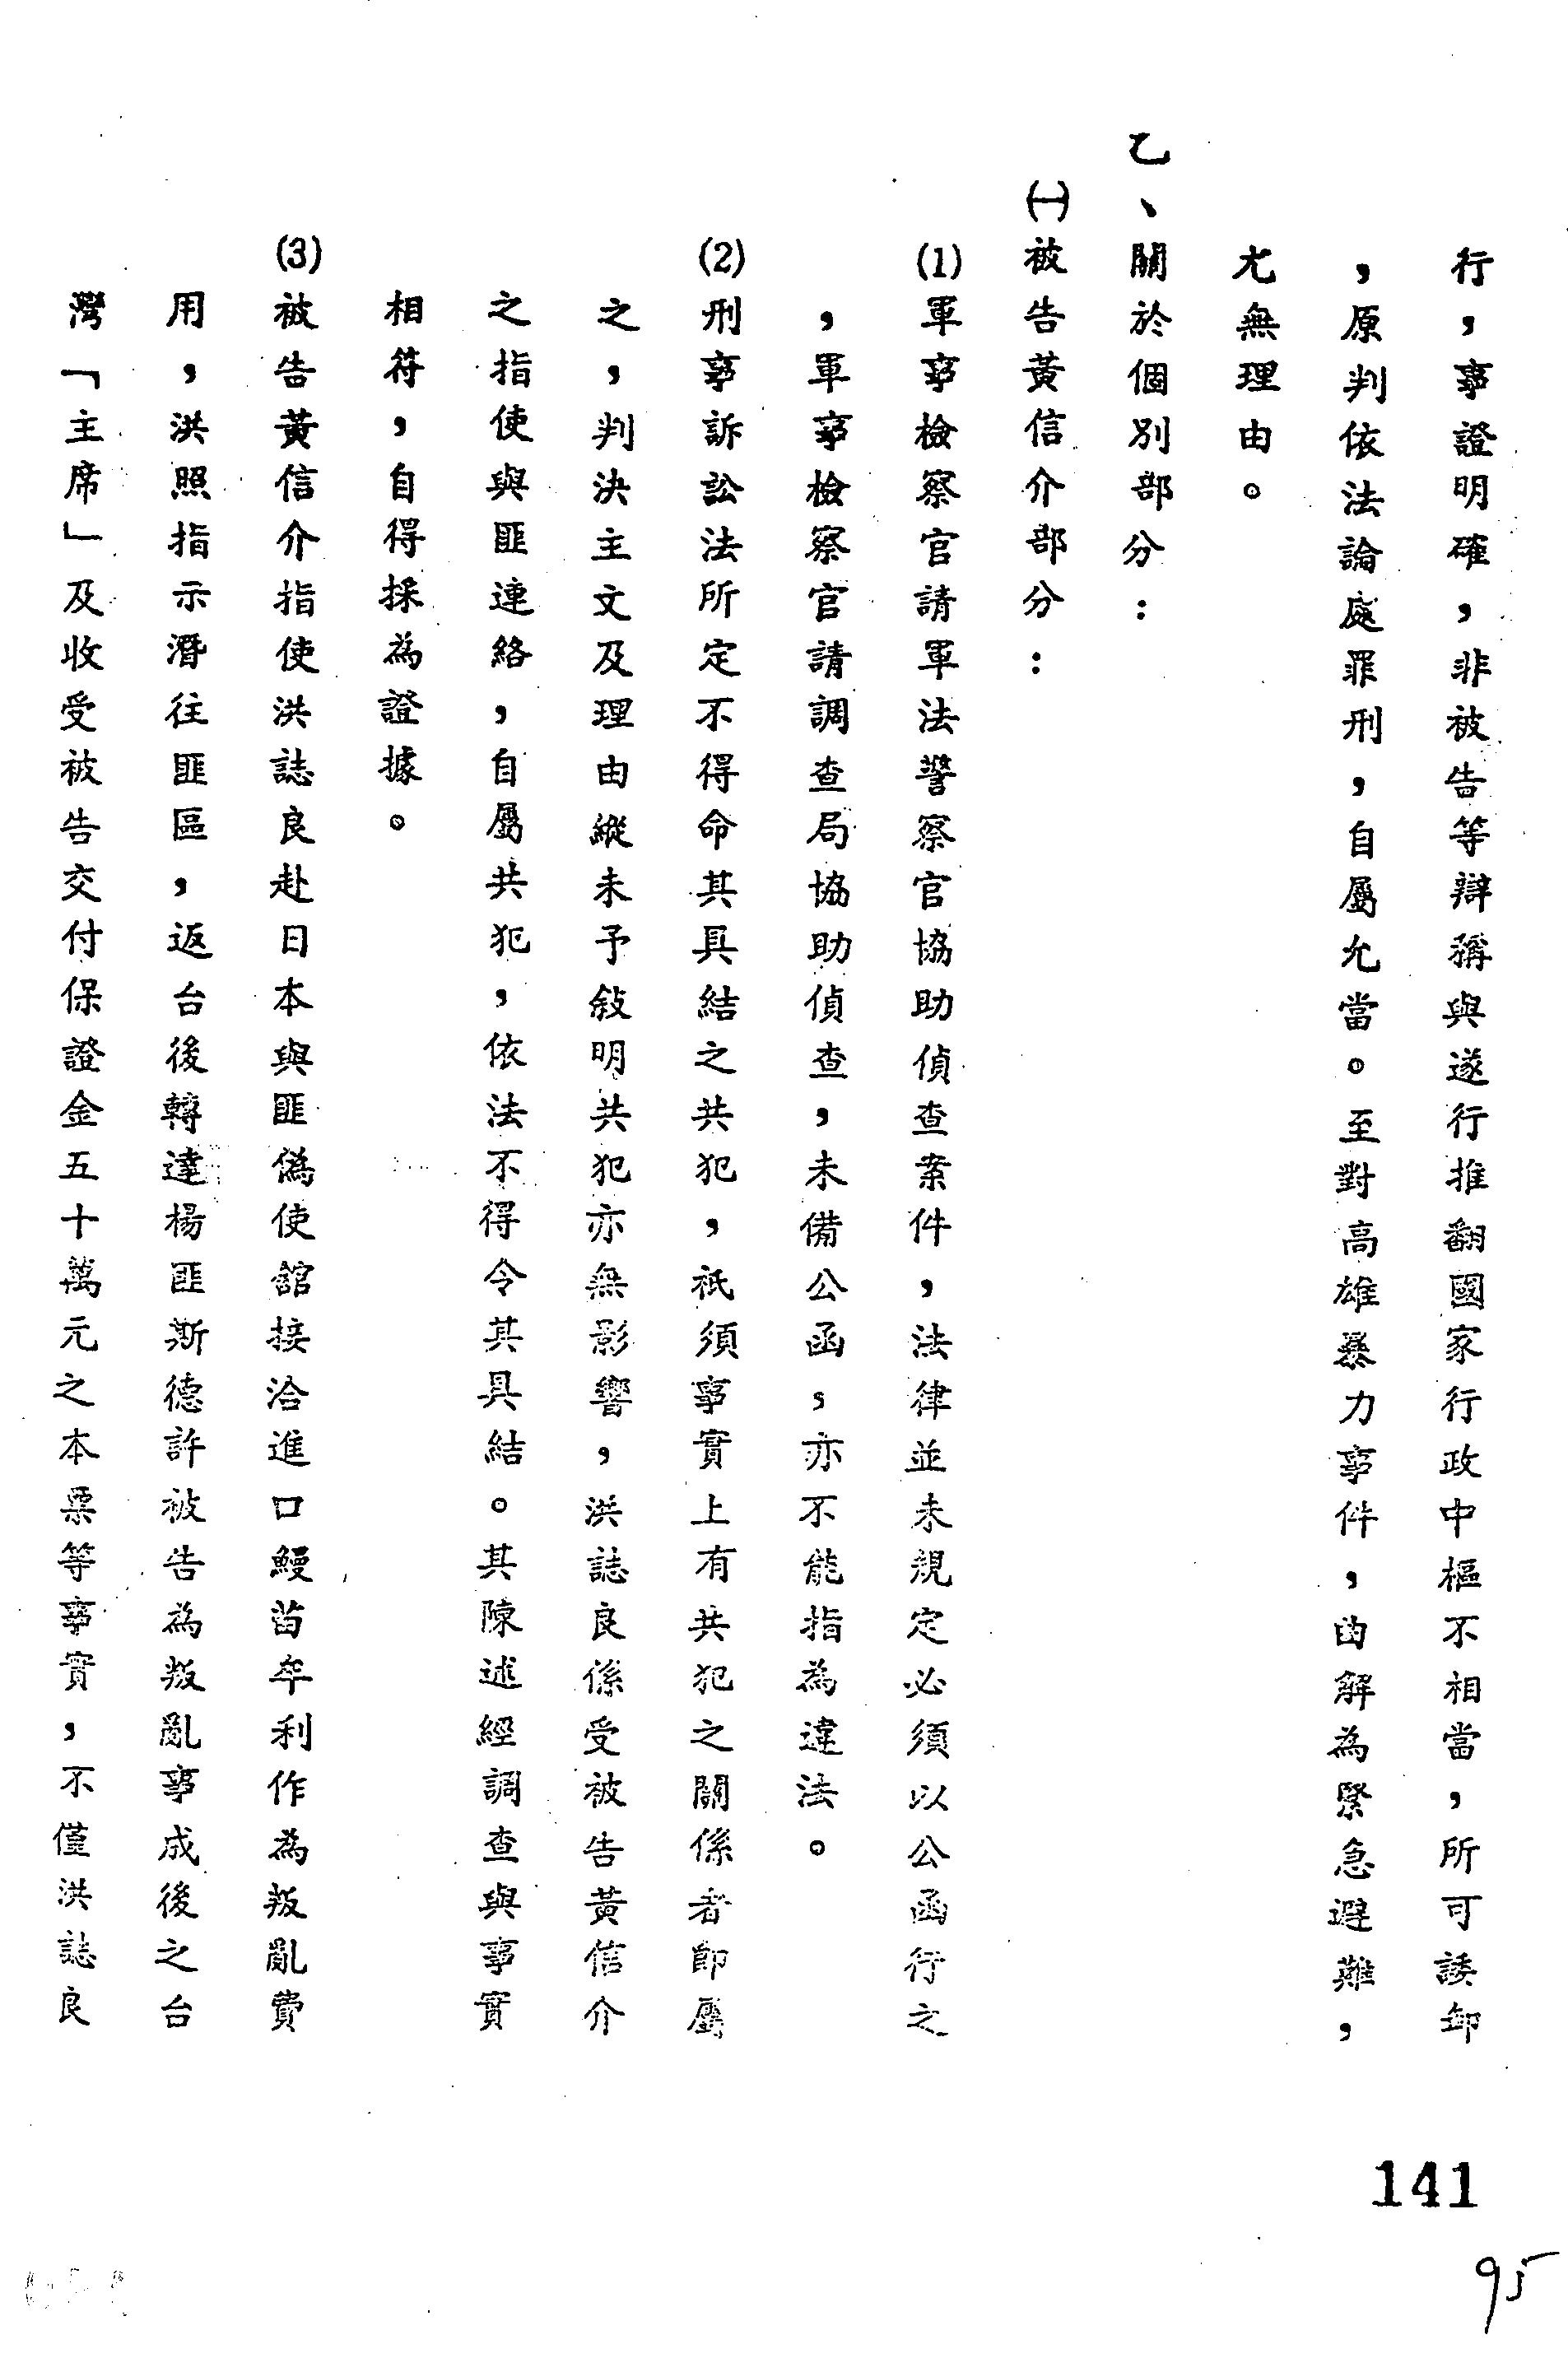 行，事證明確，非被告等辯稱與遂行推翻國家行政中樞不相當，所可諉卸
，原判依法論處罪刑，自屬允當。至對高雄暴力事件，曲解為緊急避難，
尤無理由。
乙、關於個別部分：
㈠被告黃信介部分：
(1)軍事檢察官請軍法警察官協助偵查案件，法律並未規定必須以公函行之
，軍事檢察官請調查局協助偵查，未備公函，亦不能指為違法。
(2)刑事訴訟法所定不得命其具結之共犯，祇須事實上有共犯之關係者即屬
之，判決主文及理由縱未予敍明共犯亦無影響，洪誌良係受被告黃信介
之指使與匪連絡，自屬共犯，依法不得令其具結。其陳述經調查與事實
相符，自得採為證據。
(3)被告黃信介指使洪誌良赴日本與匪偽使舘接洽進口鰻苗牟利作為叛亂費
用，洪照指示潛往匪區，返台後轉達楊匪斯德許被告為叛亂事成後之台
灣「主席」及收受被告交付保證金五十萬元之本票等事實，不僅洪誌良
141
95